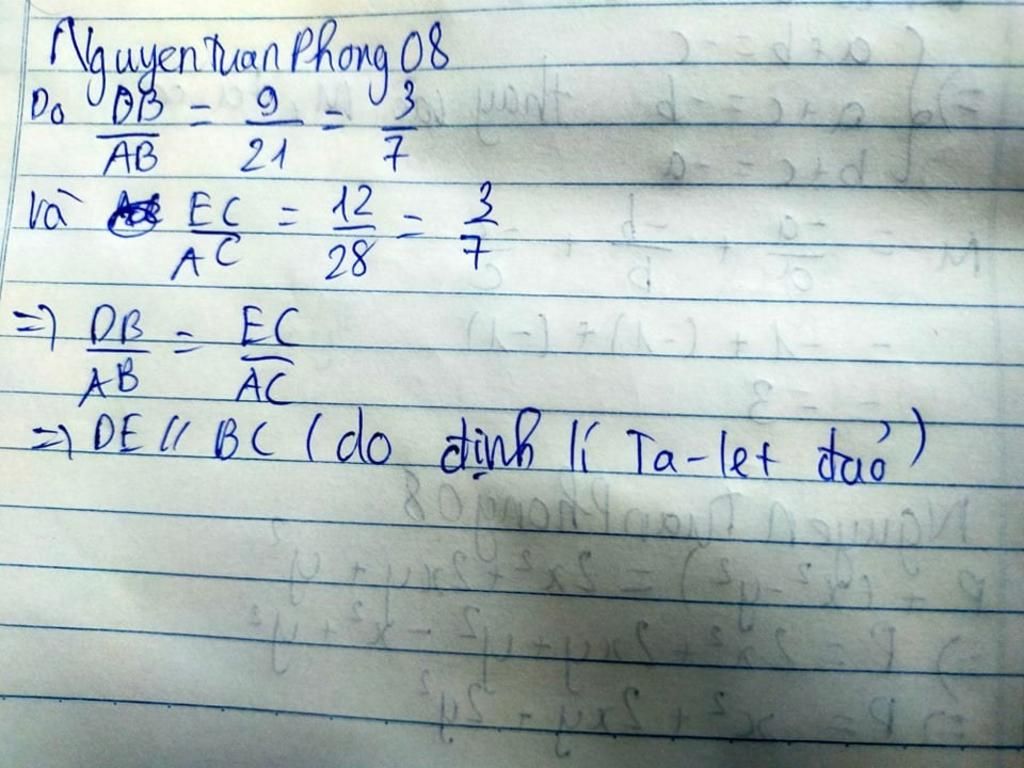 NguyenTuanPhong08
Do DB/AB = 9/21 = 3/7
Và EC/AC = 12/28 = 3/7
=> DB/AB = EC/AC
=> DE // BC (do định lí Ta-let đảo)